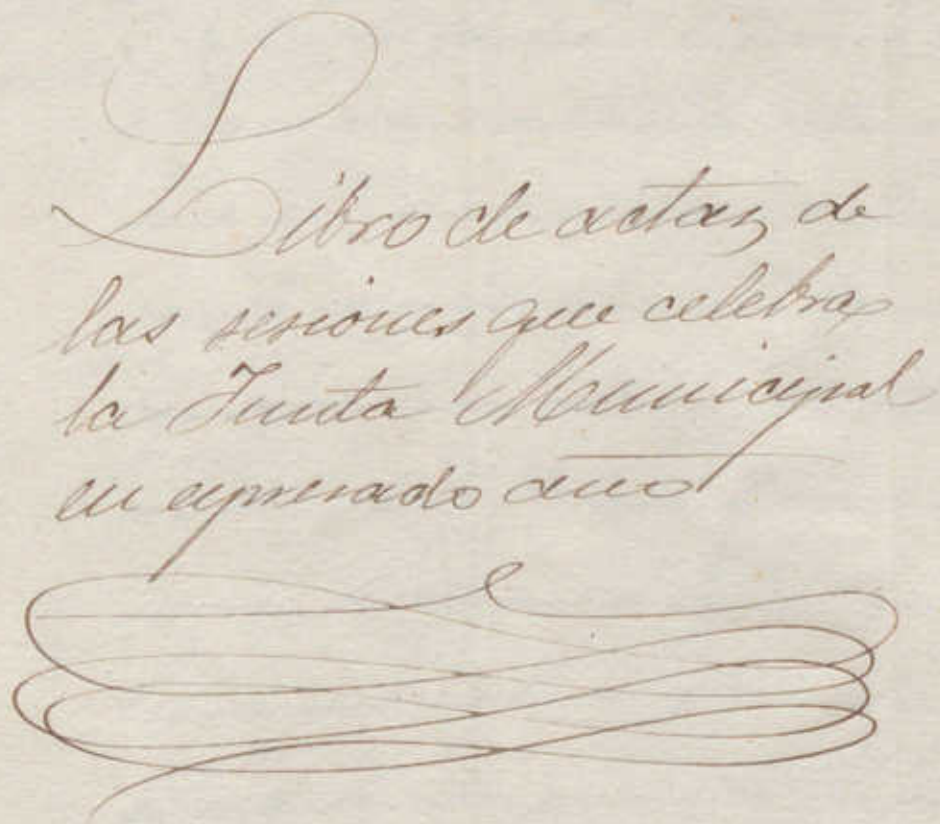 Libro de actas de
las sesiones que celebra
la Junta Municipal
en expresado año